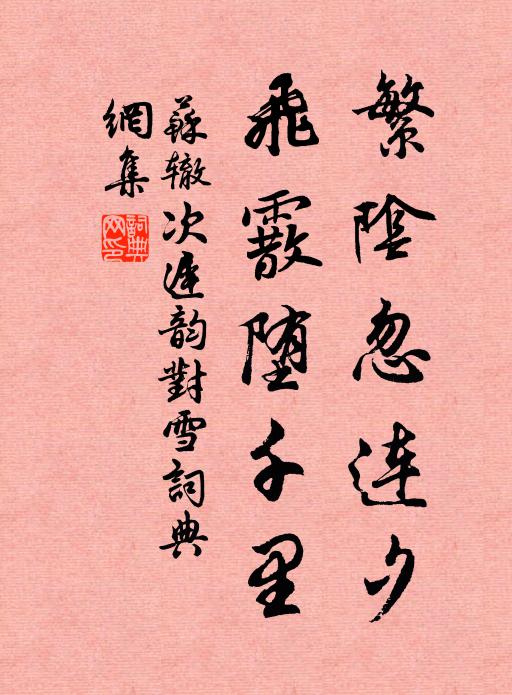 繁陰忽連夕
飛霰堕千里
蘇辙次遲韵對雪詞典
網集
詞典网印